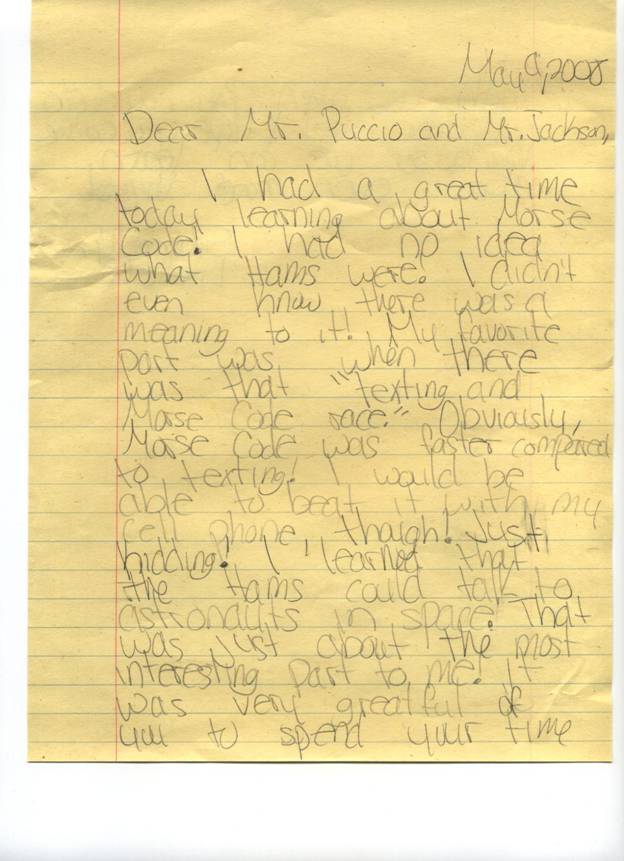 May 9, 2008
Dear Mr. Puccio and Mr. Jackson,
I had a great time
today learning about Morse
Code! I had no idea
what Hams were. I didn't
even know there was a
meaning to it! My favorite
part was when there
was that "texting and
Morse Code race." Obviously,
Morse Code was faster compered
to texting! I would be
able to beat it with my
cell phone, though! Just
kidding! I learned that
the Hams could talk to
astronauts in space! That
was just about the most
interesting part to me! It
was very greatful of
you to spend your time